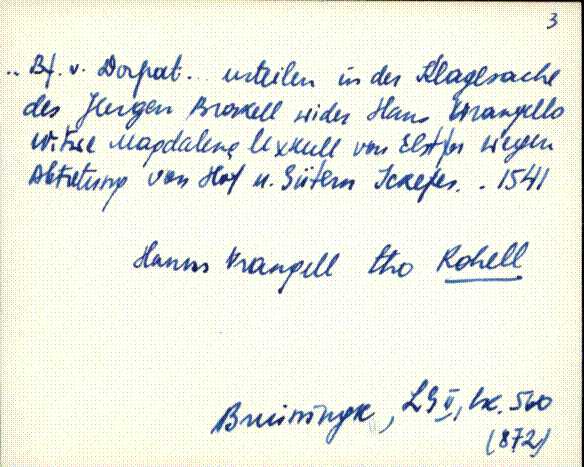 3
.. Bf. v. Dorpat... urteilen in der Klagesache
des Jürgen Brakell wider Hans Wrangells
Witwe Magdalena Uxkull von Elstfer wegen
Abtretung von Hof u. Gütern Ickefer. . 1541
Hanns Wrangell tho Rohell
Bruiningk, LG II, lk. 560
(872)